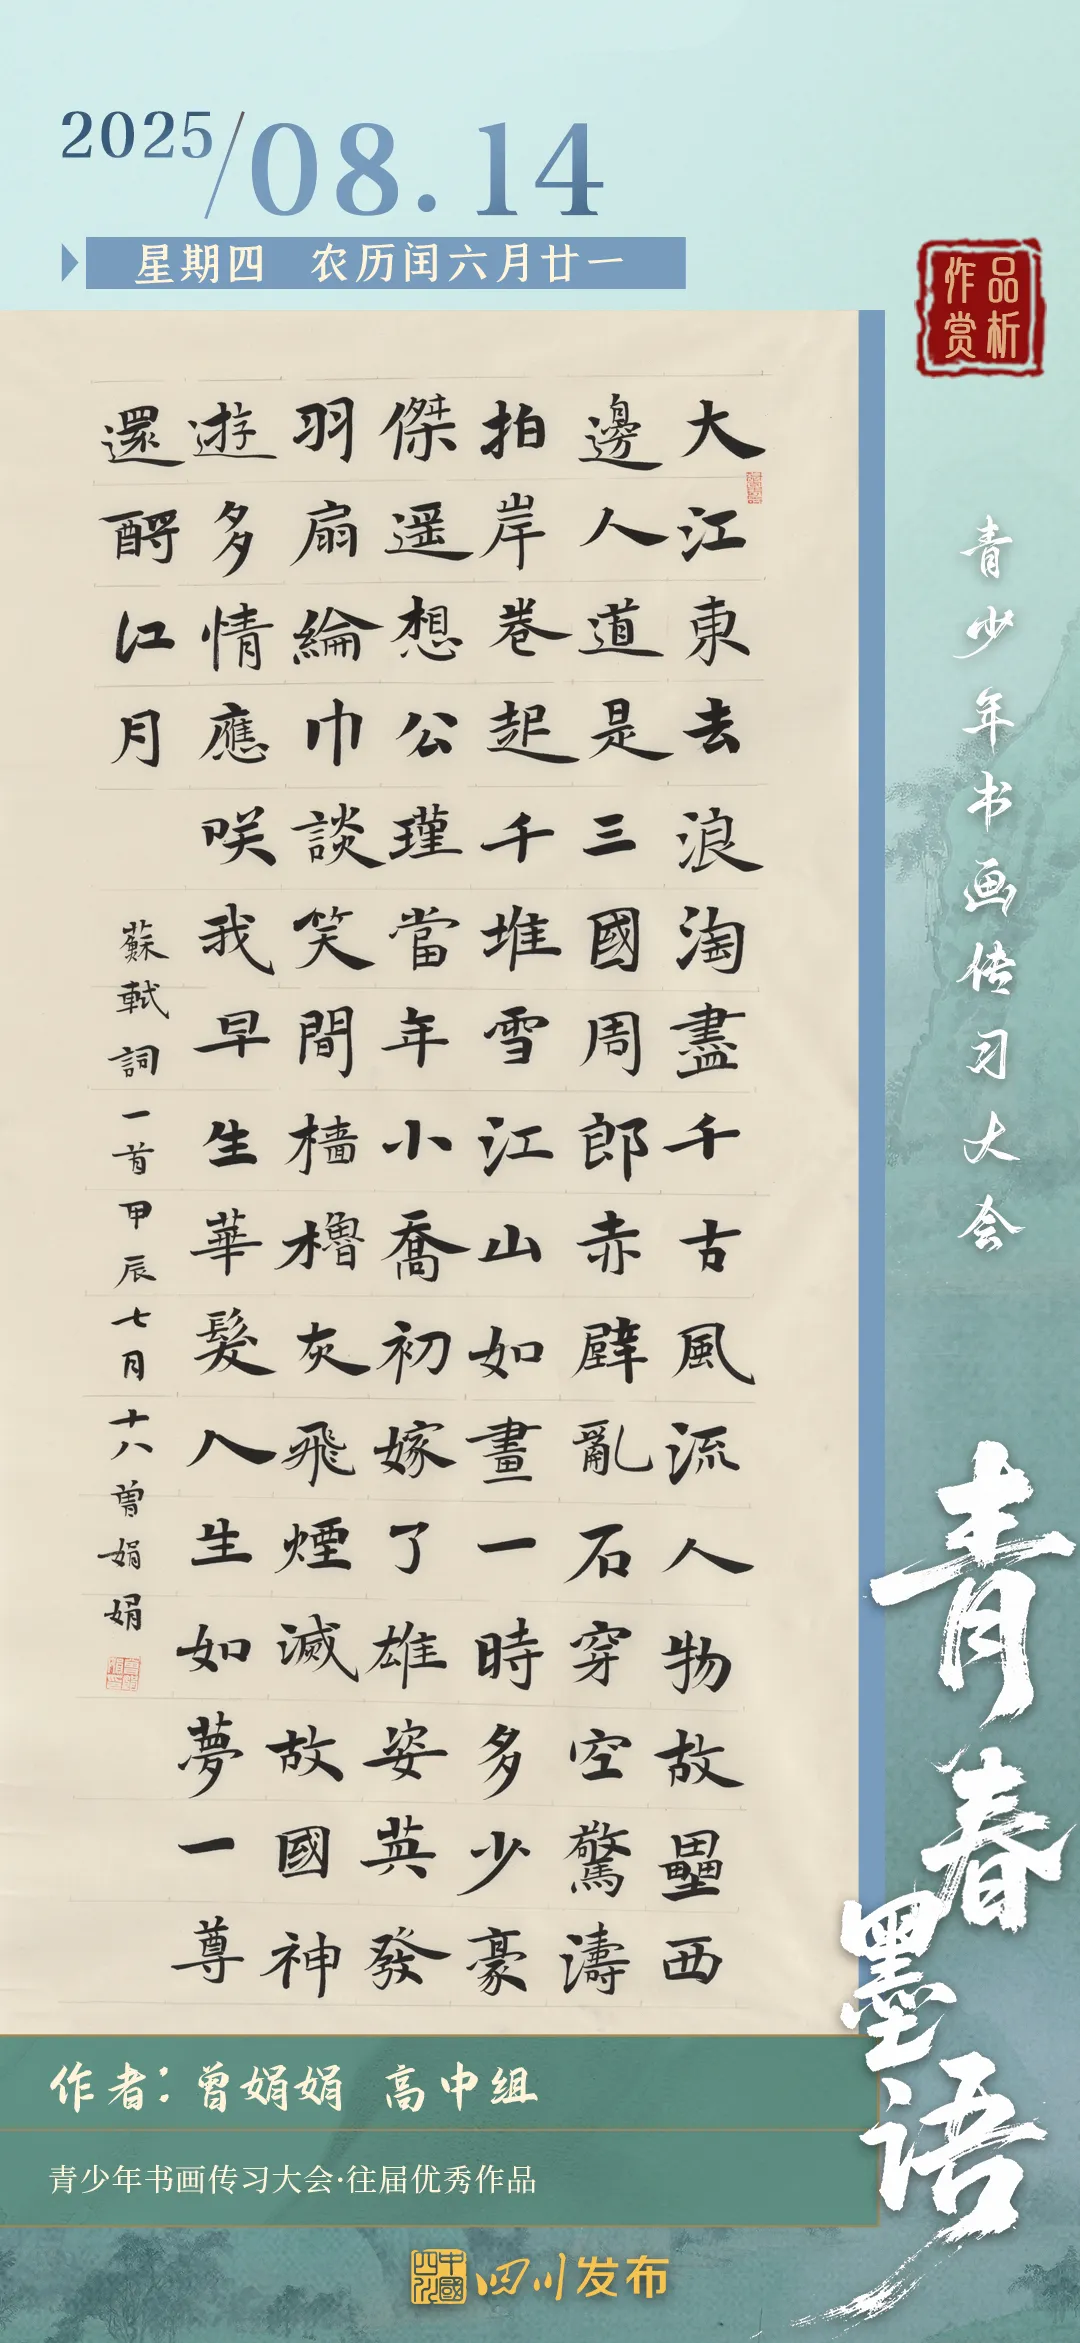 2025/08.14
星期四 农历闰六月廿一
作品
赏析
大江東去浪淘盡千古風流人物故壘西
邊人道是三國周郎赤壁亂石穿空驚濤
拍岸卷起千堆雪江山如畫一時多少豪
傑遥想公瑾當年小喬初嫁了雄姿英發
羽扇綸巾談笑間檣櫓灰飛煙滅故國神
遊多情應咲我早生華髮人生如夢一尊
還酹江月
蘇軾詞一首甲辰七月十八曾娟娟
青少年书画传习大会
青春墨语
作者:曾娟娟 高中组
青少年书画传习大会·往届优秀作品
中國四川
四川发布